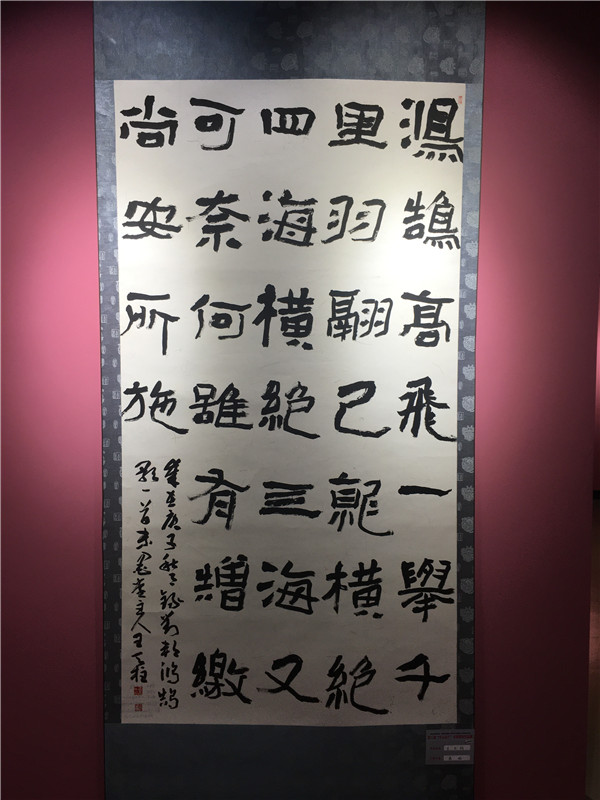 鴻鵠高飛一舉千
里羽翮已就橫絕
四海橫絕三海又
可奈何雖有繒繳
尚安所施
歲在庚子秋錄劉邦鴻鵠
歌一首主人王